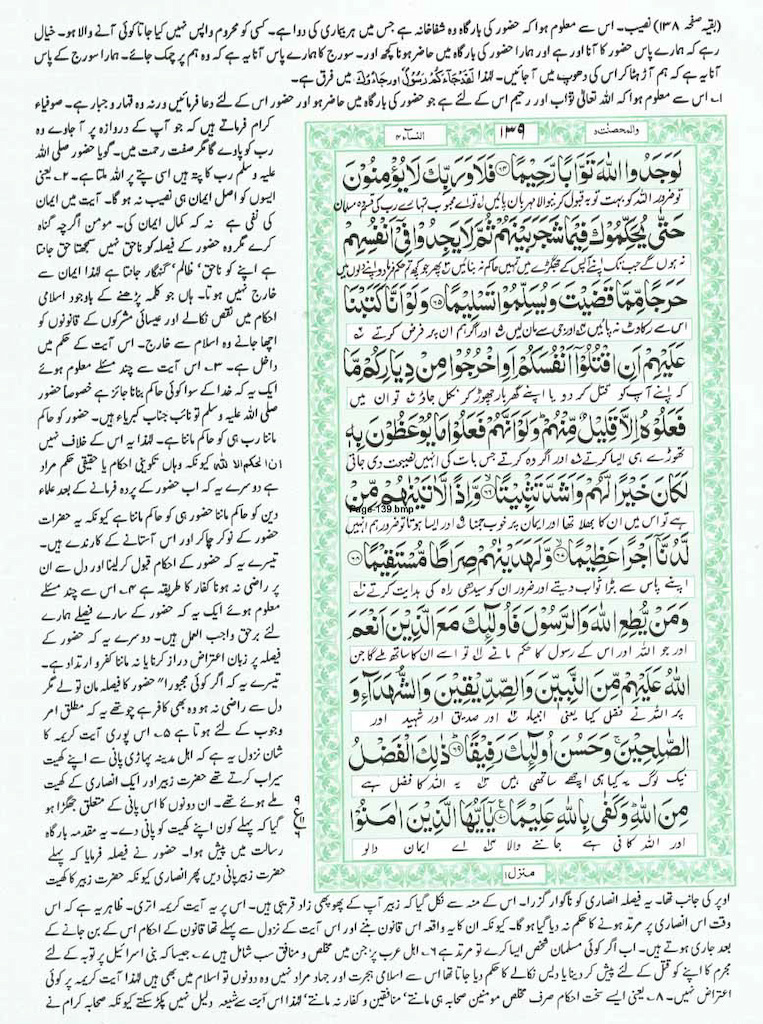 (بقیہ صفحہ ۱۳۸) نصیب۔ اس سے معلوم ہوا کہ حضور کی بارگاہ وہ شفاخانہ ہے جس میں ہر بیماری کی دوا ہے۔ کسی کو محروم واپس نہیں کیا جاتا کوئی آنے والا ہو۔ خیال
رہے کہ ہمارے پاس حضور کا آنا اور ہے اور ہمارا حضور کی بارگاہ میں حاضر ہونا کچھ اور۔ سورج کا ہمارے پاس آنا یہ ہے کہ وہ ہم پر چمک جائے۔ ہمارا سورج کے پاس
آنا یہ ہے کہ ہم آڑ ہٹا کر اس کی دھوپ میں آ جائیں۔ لہٰذا لَقَدْ جَآءَكُمْ رَسُوْلٌ اور جَآءُوْكَ میں فرق ہے۔
۱۔ اس سے معلوم ہوا کہ اللہ تعالٰی تواب اور رحیم اس کے لئے ہے جو حضور کی بارگاہ میں حاضر ہو اور حضور اس کے لئے دعا فرمائیں ورنہ وہ قہار و جبار ہے۔ صوفیاء
والمحصنٰت ۵
۱۳۹
النسآء ۴
لَوَجَدُوا اللّٰهَ تَوَّابًا رَّحِيْمًا ۶۴ فَلَا وَرَبِّكَ لَا يُؤْمِنُوْنَ
تو ضرور اللہ کو بہت توبہ قبول کرنیوالا مہربان پائیں تو اے محبوب تمہارے رب کی قسم وہ مسلمان
حَتّٰى يُحَكِّمُوْكَ فِيْمَا شَجَرَ بَيْنَهُمْ ثُمَّ لَا يَجِدُوْا فِيْٓ اَنْفُسِهِمْ
نہ ہوں گے جب تک اپنے آپس کے جھگڑے میں تمہیں حاکم نہ بنائیں پھر جو کچھ تم حکم فرما دو اپنے دلوں میں
حَرَجًا مِّمَّا قَضَيْتَ وَيُسَلِّمُوْا تَسْلِيْمًا ۶۵ وَلَوْ اَنَّا كَتَبْنَا
اس سے رکاوٹ نہ پائیں اور جی سے مان لیں اور اگر ہم ان پر فرض کرتے
عَلَيْهِمْ اَنِ اقْتُلُوْٓا اَنْفُسَكُمْ اَوِ اخْرُجُوْا مِنْ دِيَارِكُمْ مَّا
کہ اپنے آپ کو قتل کر دو یا اپنے گھر بار چھوڑ کر نکل جاؤ تو ان میں
فَعَلُوْهُ اِلَّا قَلِيْلٌ مِّنْهُمْ وَلَوْ اَنَّهُمْ فَعَلُوْا مَا يُوْعَظُوْنَ بِهٖ
تھوڑے ہی ایسا کرتے اور اگر وہ کرتے جس بات کی انہیں نصیحت دی جاتی
لَكَانَ خَيْرًا لَّهُمْ وَاَشَدَّ تَثْبِيْتًا ۶۶ وَّاِذًا لَّاٰتَيْنٰهُمْ مِّنْ
Page-139.bmp
ہے تو اس میں ان کا بھلا تھا اور ایمان پر خوب جمنا اور ایسا ہوتا تو ضرور ہم انہیں
لَّدُنَّآ اَجْرًا عَظِيْمًا ۶۷ وَّلَهَدَيْنٰهُمْ صِرَاطًا مُّسْتَقِيْمًا ۶۸
اپنے پاس سے بڑا ثواب دیتے اور ضرور ان کو سیدھی راہ کی ہدایت کرتے
وَمَنْ يُّطِعِ اللّٰهَ وَالرَّسُوْلَ فَاُولٰٓئِكَ مَعَ الَّذِيْنَ اَنْعَمَ
اور جو اللہ اور اس کے رسول کا حکم مانے تو اسے ان کا ساتھ ملے گا جن
اللّٰهُ عَلَيْهِمْ مِّنَ النَّبِيّٖنَ وَالصِّدِّيْقِيْنَ وَالشُّهَدَآءِ وَ
پر اللہ نے فضل کیا یعنی انبیاء اور صدیق اور شہید اور
الصّٰلِحِيْنَ وَحَسُنَ اُولٰٓئِكَ رَفِيْقًا ۶۹ ذٰلِكَ الْفَضْلُ
نیک لوگ یہ کیا ہی اچھے ساتھی ہیں یہ اللہ کا فضل ہے
مِنَ اللّٰهِ وَكَفٰى بِاللّٰهِ عَلِيْمًا ۷۰ يٰٓاَيُّهَا الَّذِيْنَ اٰمَنُوْا
اور اللہ کافی ہے جاننے والا اے ایمان والو
منزل ۱
کرام فرماتے ہیں کہ جو آپ کے دروازہ پر آ جاوے وہ
رب کو پاوے گا مگر صفت رحمت میں۔ گویا حضور صلی اللہ
علیہ و سلم رب کا پتہ ہیں اسی پتے پر اللہ ملتا ہے۔ ۲۔ یعنی
ایسوں کو اصل ایمان ہی نصیب نہ ہو گا۔ آیت میں ایمان
کی نفی ہے نہ کہ کمال ایمان کی۔ مومن اگرچہ گناہ
کرے مگر وہ حضور کے فیصلہ کو ناحق نہیں سمجھتا حق جانتا
ہے اپنے کو ناحق، ظالم، گنہگار جانتا ہے لہٰذا ایمان سے
خارج نہیں ہوتا۔ ہاں جو کلمہ پڑھنے کے باوجود اسلامی
احکام میں نقص نکالے اور عیسائی مشرکوں کے قانونوں کو
اچھا جانے وہ اسلام سے خارج۔ اس آیت کے حکم میں
داخل ہے۔ ۳۔ اس آیت سے چند مسئلے معلوم ہوئے
ایک یہ کہ خدا کے سوا کوئی حاکم بنانا جائز ہے خصوصاً حضور
صلی اللہ علیہ و سلم تو نائب جناب کبریاء ہیں۔ حضور کو حاکم
ماننا رب ہی کو حاکم ماننا ہے۔ لہٰذا یہ اس کے خلاف نہیں
ان الحکم الا للہ کیونکہ وہاں تکوینی احکام یا حقیقی حکم مراد
ہے دوسرے یہ کہ اب حضور کے پردہ فرمانے کے بعد علماء
دین کو حاکم ماننا حضور ہی کو حاکم ماننا ہے کیونکہ یہ حضرات
حضور کے نوکر چاکر اور اس آستانے کے کارندے ہیں۔
تیسرے یہ کہ حضور کے احکام قبول کر لینا اور دل سے ان
پر راضی نہ ہونا کفار کا طریقہ ہے ۴۔ اس سے چند مسئلے
معلوم ہوئے ایک یہ کہ حضور کے سارے فیصلے ہمارے
لئے برحق واجب العمل ہیں۔ دوسرے یہ کہ حضور کے
فیصلہ پر زبان اعتراض دراز کرنا یا نہ ماننا کفر و ارتداد ہے۔
تیسرے یہ کہ اگر کوئی مجبوراً حضور کا فیصلہ مان تو لے مگر
دل سے راضی نہ ہو وہ بھی کافر ہے چوتھے یہ کہ مطلق امر
وجوب کے لئے ہوتا ہے ۵۔ اس پوری آیت کریمہ کا
شان نزول یہ ہے کہ اہل مدینہ پہاڑی پانی سے اپنے کھیت
سیراب کرتے تھے حضرت زبیر اور ایک انصاری کے کھیت
ملے ہوئے تھے۔ ان دونوں کا اس پانی کے متعلق جھگڑا ہو
گیا کہ پہلے کون اپنے کھیت کو پانی دے۔ یہ مقدمہ بارگاہ
رسالت میں پیش ہوا۔ حضور نے فیصلہ فرمایا کہ پہلے
حضرت زبیر پانی دیں پھر انصاری کیونکہ حضرت زبیر کا کھیت
ع
اوپر کی جانب تھا۔ یہ فیصلہ انصاری کو ناگوار گزرا۔ اس کے منہ سے نکل گیا کہ زبیر آپ کے پھوپھی زاد قریبی ہیں۔ اس پر یہ آیت کریمہ اتری۔ ظاہر یہ ہے کہ اس
وقت اس انصاری پر مرتد ہونے کا حکم نہ دیا گیا ہو گا۔ کیونکہ ان کا یہ واقعہ اس قانون بننے اور اس آیت کے نزول سے پہلے تھا قانون کے احکام اس کے بن جانے کے
بعد جاری ہوتے ہیں۔ اب اگر کوئی مسلمان شخص ایسا کرے تو مرتد ہے ۶۔ اہل عرب پر جن میں مخلص و منافق سب شامل ہیں ۷۔ جیسا کہ بنی اسرائیل پر توبہ کے لئے
مجرم کا اپنے کو قتل کے لئے پیش کر دینا یا دیس نکالے کا حکم دیا جاتا تھا اس سے اسلامی ہجرت اور جہاد مراد نہیں وہ دونوں تو اسلام میں بھی ہیں لہٰذا آیت کریمہ پر کوئی
اعتراض نہیں۔ ۸۔ یعنی ایسے سخت احکام صرف مخلص مومنین صحابہ ہی مانتے، منافقین و کفار نہ مانتے، لہٰذا اس آیت سے شیعہ دلیل نہیں پکڑ سکتے کیونکہ صحابہ کرام نے